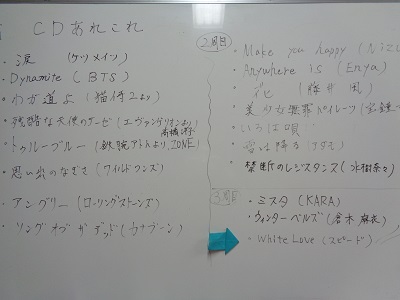 CDあれこれ
・涙 (ケツメイシ)
・Dynamite (BTS)
・わが道よ (猫侍2より)
・残酷な天使のテーゼ (エヴァンゲリオンより)
高橋洋子
・トゥルーブルー (鉄腕アトムより、ZONE)
・思い出のなぎさ (ワイルドワンズ)
・アングリー (ローリングストーンズ)
・ソングオブザデッド (カナブーン)
2周目
・Make you happy (NiziU
・Anywhere is (Enya)
・花 (藤井風)
・美少女無罪パイレーツ (宝鐘
・いろは唄
・雪は降る (アダモ)
・禁断のレジスタンス (水樹奈々)
3周目
・ミスター (KARA)
・ウィンターベルズ (倉木麻衣)
・White Love (スピード)